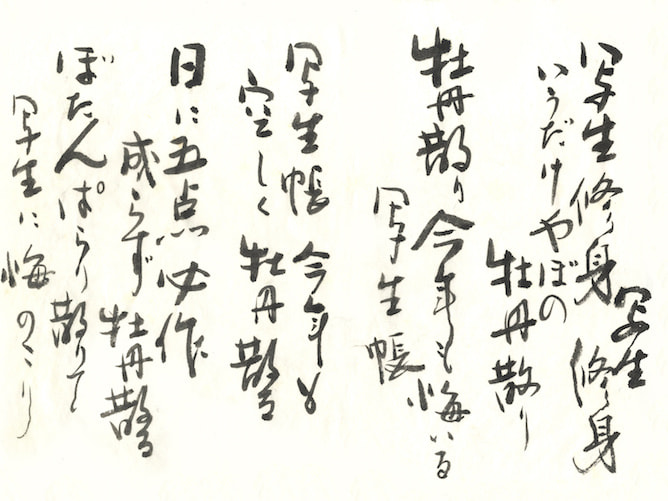 写生修身 写生修身
いうだけやぼの
牡丹散り
牡丹散り今年も悔いる
写生帳
写生帳 今年も
空しく 牡丹散る
日に五点必作
成らず 牡丹散る
ぼたんぱらり散りて
写生に悔のこり